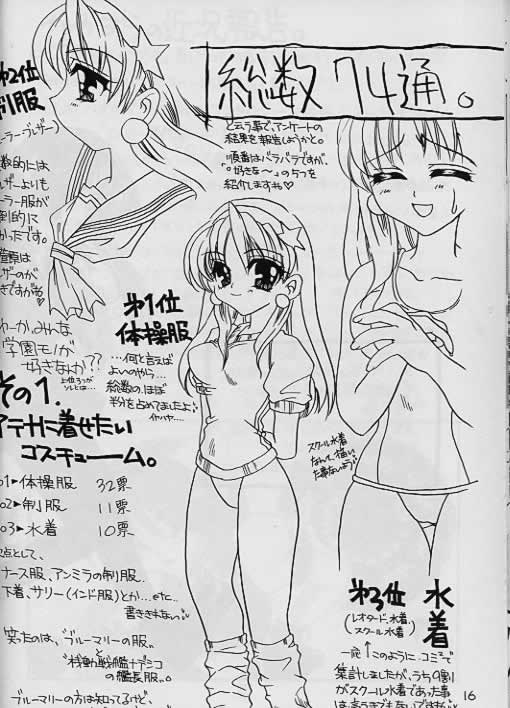 総数 74通。
と云う事で、アンケートの
結果を報告しようかと。
順番はバラバラですが、
「好きな〜」の5つを
紹介しますね♡
第2位
制服
数的には
ザーよりも
ーラー服が
倒的に
かったです。
ザーのが
きですがね
みんな
学園モノが
好きなか??
第1位
体操服
…何と言えば
よいのやら…
総数のほぼ
半分を占めてましたよ
その1.
アテナに着せたい
コスチューム。
01▶体操服 32票
02▶制服 11票
03▶水着 10票
点として、
ナース服、アンミラの制服…
下着、サリー(インド服)とか…etc..
書ききれねっ
笑ったのは、「ブルーマリーの服」
と
「機動戦艦ナデシコ
の艦長服」。
ブルーマリーの方は知ってるけど、
スクール水着
なんて、描いた
事ないよう
第3位 水着
(レオタード水着、)
(スクール水着)
一応↑このように、コミで
集計しましたが、うち9割
がスクール水着であった事
は言うまでもないですが
16